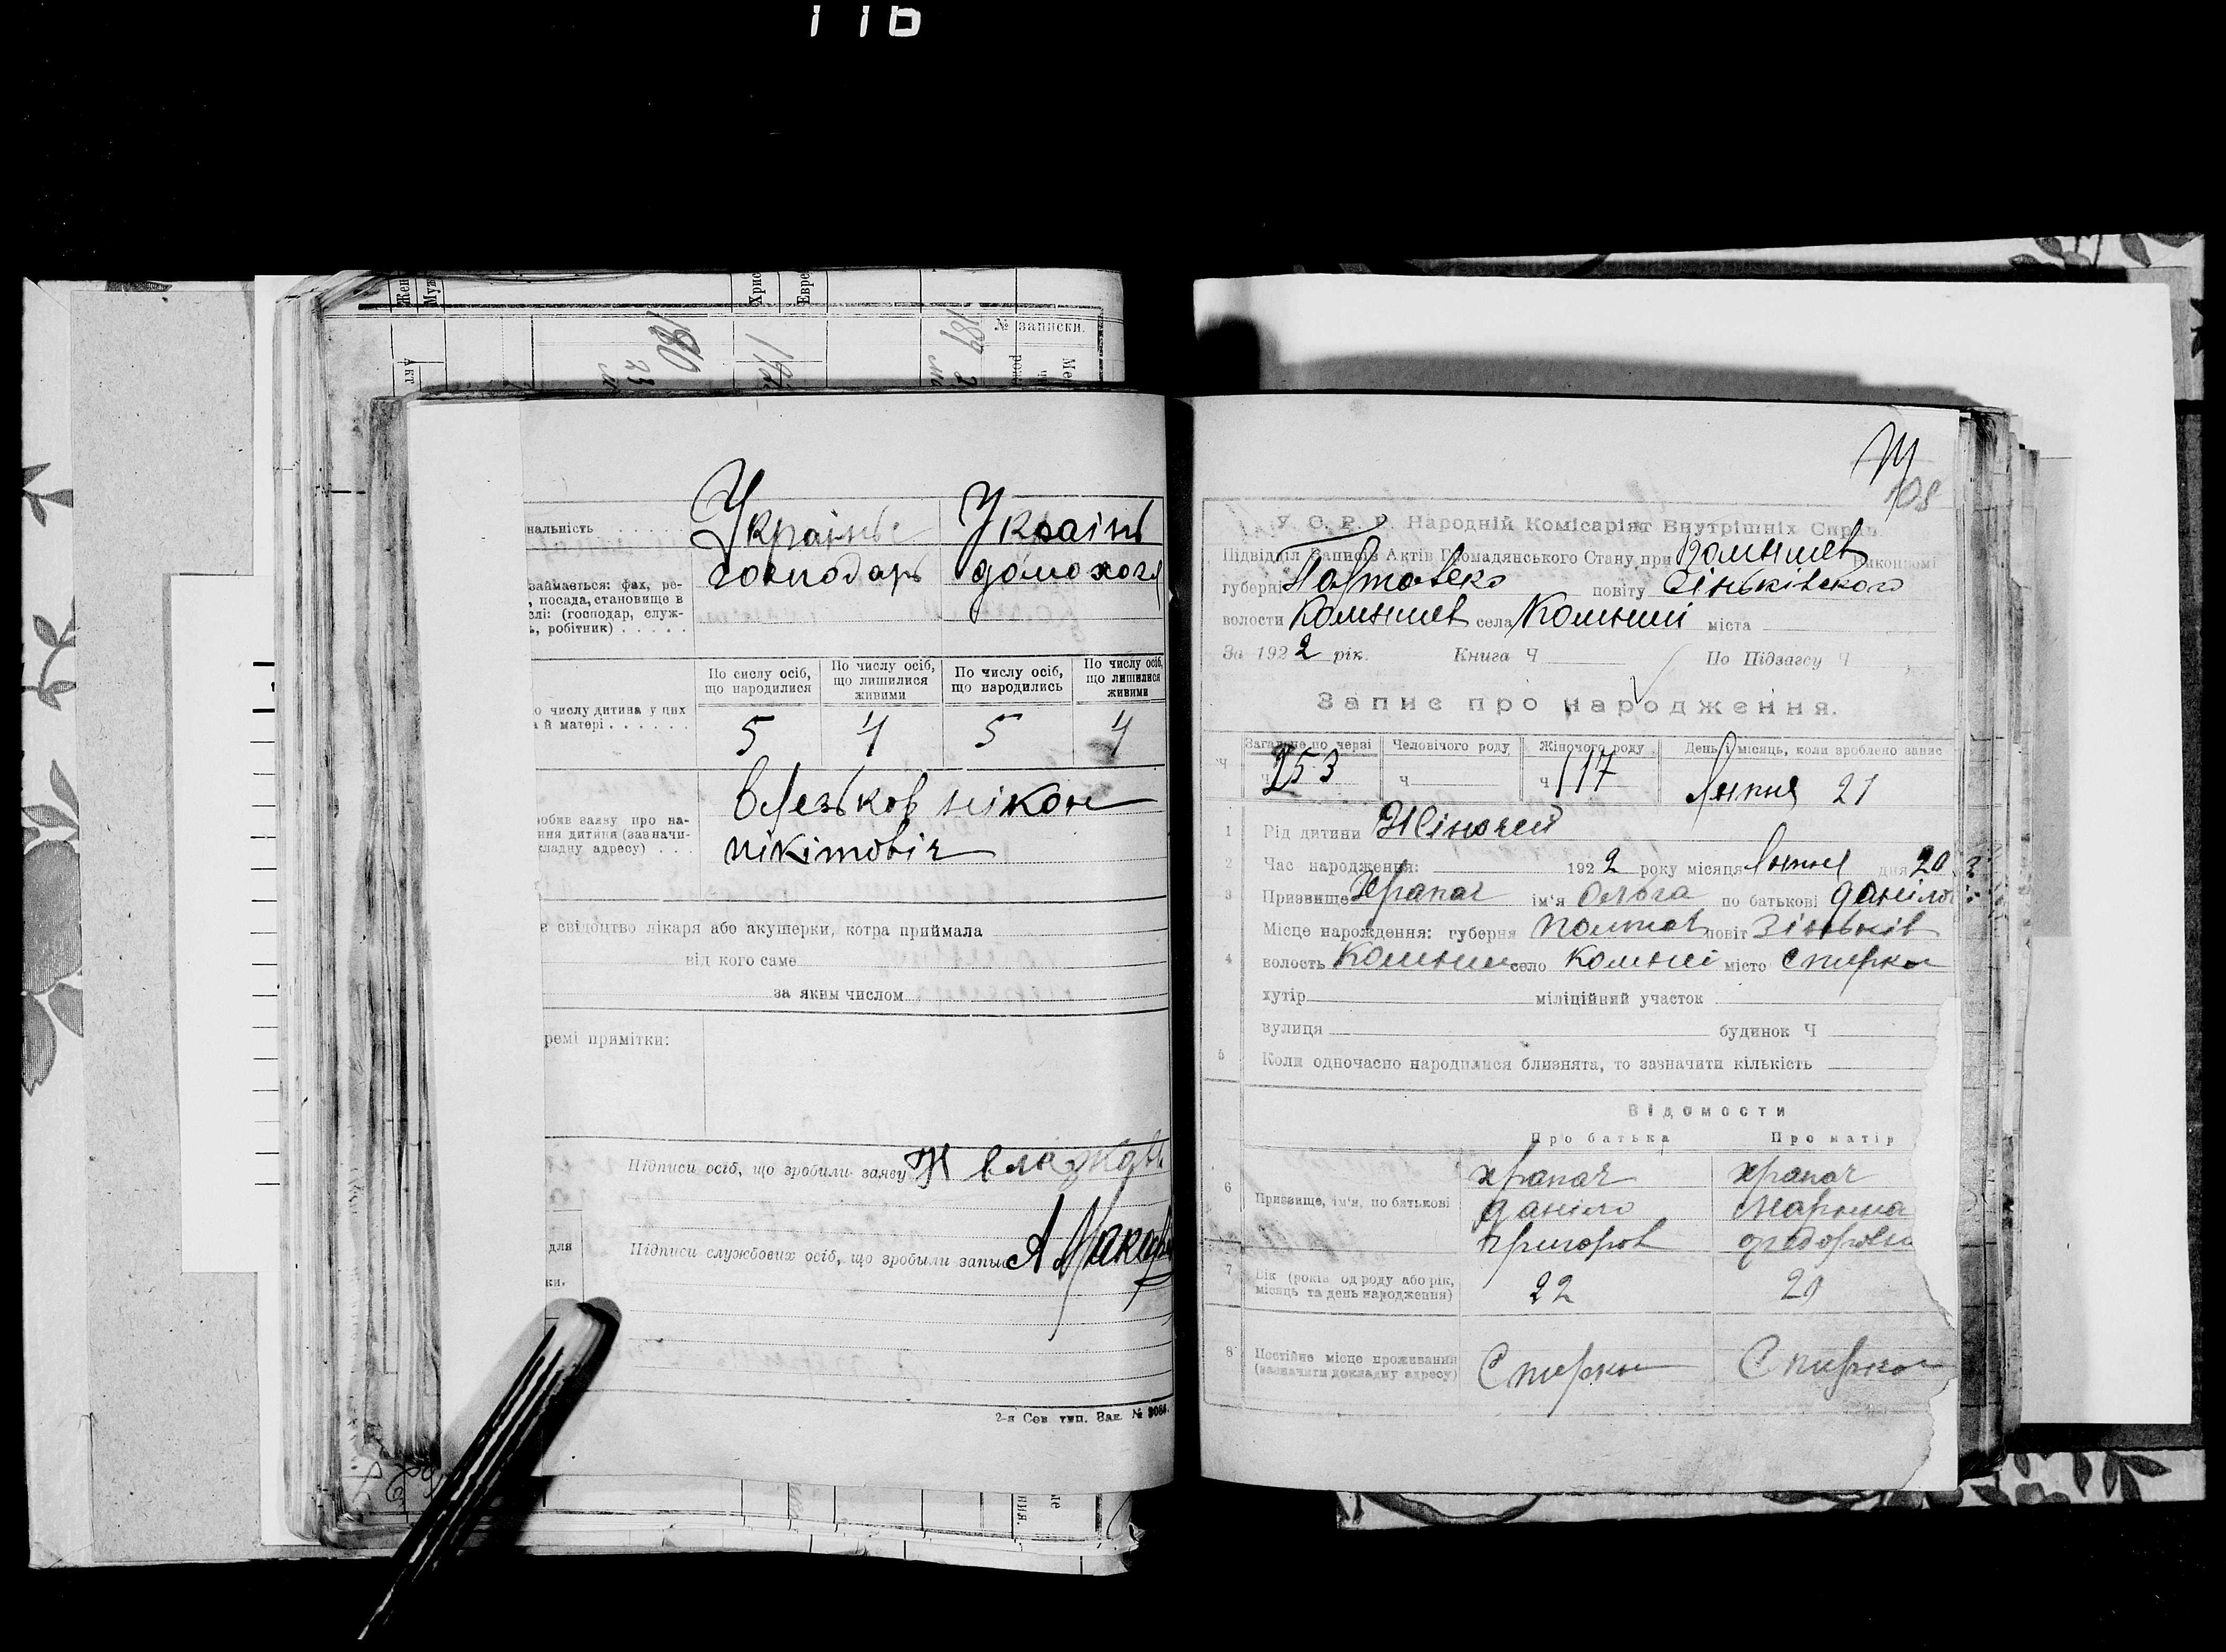 116
Жен
Муж
Христ
Евре
№ записки.
180
23
187
2
Акт
нальність . . . . . Українь Українь
займається: фах, ре-
, посада, становище в
слі: (господар, служ-
ь, робітник) . . . . .
господарь домохозя
По сислу осіб, що народилися
По числу осіб, що лишилися живими
По числу осіб, що народились
По числу осіб, що лишилися живими
о числу дитина у цих
а й матері . . . . . . .
5 4 5 4
нікон
обив заяву про на-
ння дитини (зазначи-
кладну адресу) . . .
нікітовіч
е свідоцтво лікаря або акушерки, котра приймала
від кого саме
за яким числом
ремі примітки:
Підписи осіб, що зробили заяву Н
Підписи службових осіб, що зробыли запыс А Макар
для
ки.
2-я Сов тип. Зак. № 3084.
108
У. С. Р. Р. Народній Комісаріят Внутрішніх Справ.
Підвідділ Записів Актів Громадянського Стану при Комышев виконкомі
губерні Полтавско повіту Сіньківского
волости Комышев села Комыші міста
За 1922 рік. Книга Ч По Підзагсу Ч
Запис про народження.
Загальне по черзі Человічого роду Жіночого роду День і місяць, коли зроблено запис
Ч
ч 253 ч ч 117 Липня 21
1 Рід дитини Жіночей
2 Час народження: 1922 року місяця Липня дня 20
3 Призвище Храпач ім'я Ольга по батькові даніло
Місце народження: губерня Полтав повіт Зіньків
4 волость Комыши село Комыші місто Спирки
хутір міліційний участок
вулиця будинок Ч
5 Коли одночасно народилися близнята, то зазначити кількість
Відомости
Про батька Про матір
6 Призвище, ім'я, по батькові
храпач храпач
даніло Марына
Григоров федоровна
7 Вік (років од роду або рік,
місяць та день народження)
22 20
8 Постійне місце проживання
(зазначити докладну адресу)
Спирки Спирки